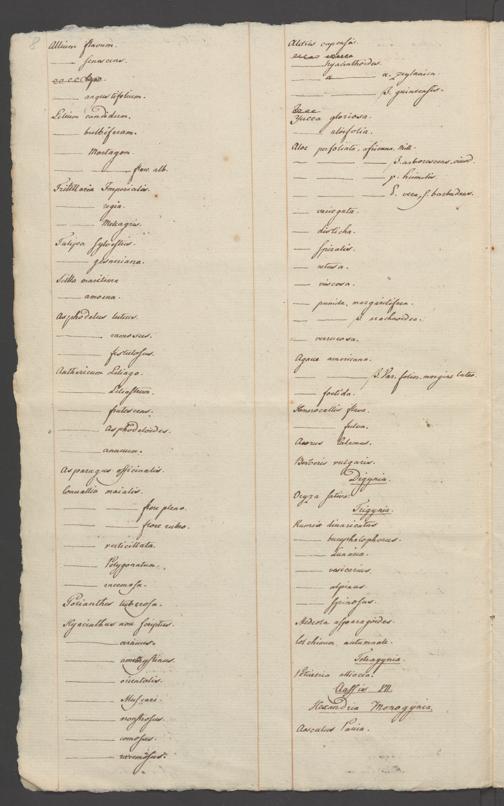 8
Allium flavum.
—— senescens.
—— angustifolium.
Lilium candidum.
—— bulbiferum.
Martagon.
—— —— flor. alb.
Fritillaria Imperialis.
—— regia.
—— Meleagris.
Tulipa Sylvestris.
—— gesneriana.
Scilla maritima
—— amoena.
Asphodelus luteus.
—— ramosus.
—— fistulosus.
Anthericum Liliago.
—— Liliastrum.
—— frutescens.
—— Asphodeloides.
—— annuum.
Asparagus officinalis.
Convallia maialis.
—— —— flore pleno.
—— —— flore rubro.
—— verticillata.
—— Polygonatum.
—— racemosa.
Polianthes tuberosa.
Hyacinthus non scriptus.
—— cernuus.
—— amethystinus.
—— orientalis.
—— Muscari.
—— monstrosus.
—— comosus.
—— racemosus.
Aletris capensis.
—— hyacinthoides.
—— a —— α. zeylanica.
—— —— β. guineensis.
Yucca gloriosa.
—— aloifolia.
Aloe perfoliata, africana, Mill.
— —— —— β. arborescens,
— —— —— γ. humilis.
— —— —— ξ. vera, f. barbadens.
— variegata.
— disticha.
— spiralis.
— retusa.
— viscosa.
— pumila, margaritifera.
— —— β. arachnoidea.
— verrucosa.
Agave americana.
— —— β. Var. folior. margine luteo
— foetida.
Hemerocallis flava.
—— fulva.
Acorus Calamus.
Berberis vulgaris.
Digynia.
Oryza sativa.
Trigynia.
Rumex divaricatus
—— bucephalophorus.
—— Lunaria.
—— vesicarius.
—— alpinus.
—— spinosus.
Medeola asparagoides.
Colchicum autumnale.
Tetragynia.
Petiveria alliacea.
Classis VII.
Hexandria Monogynia.
Aesculus Pavia.